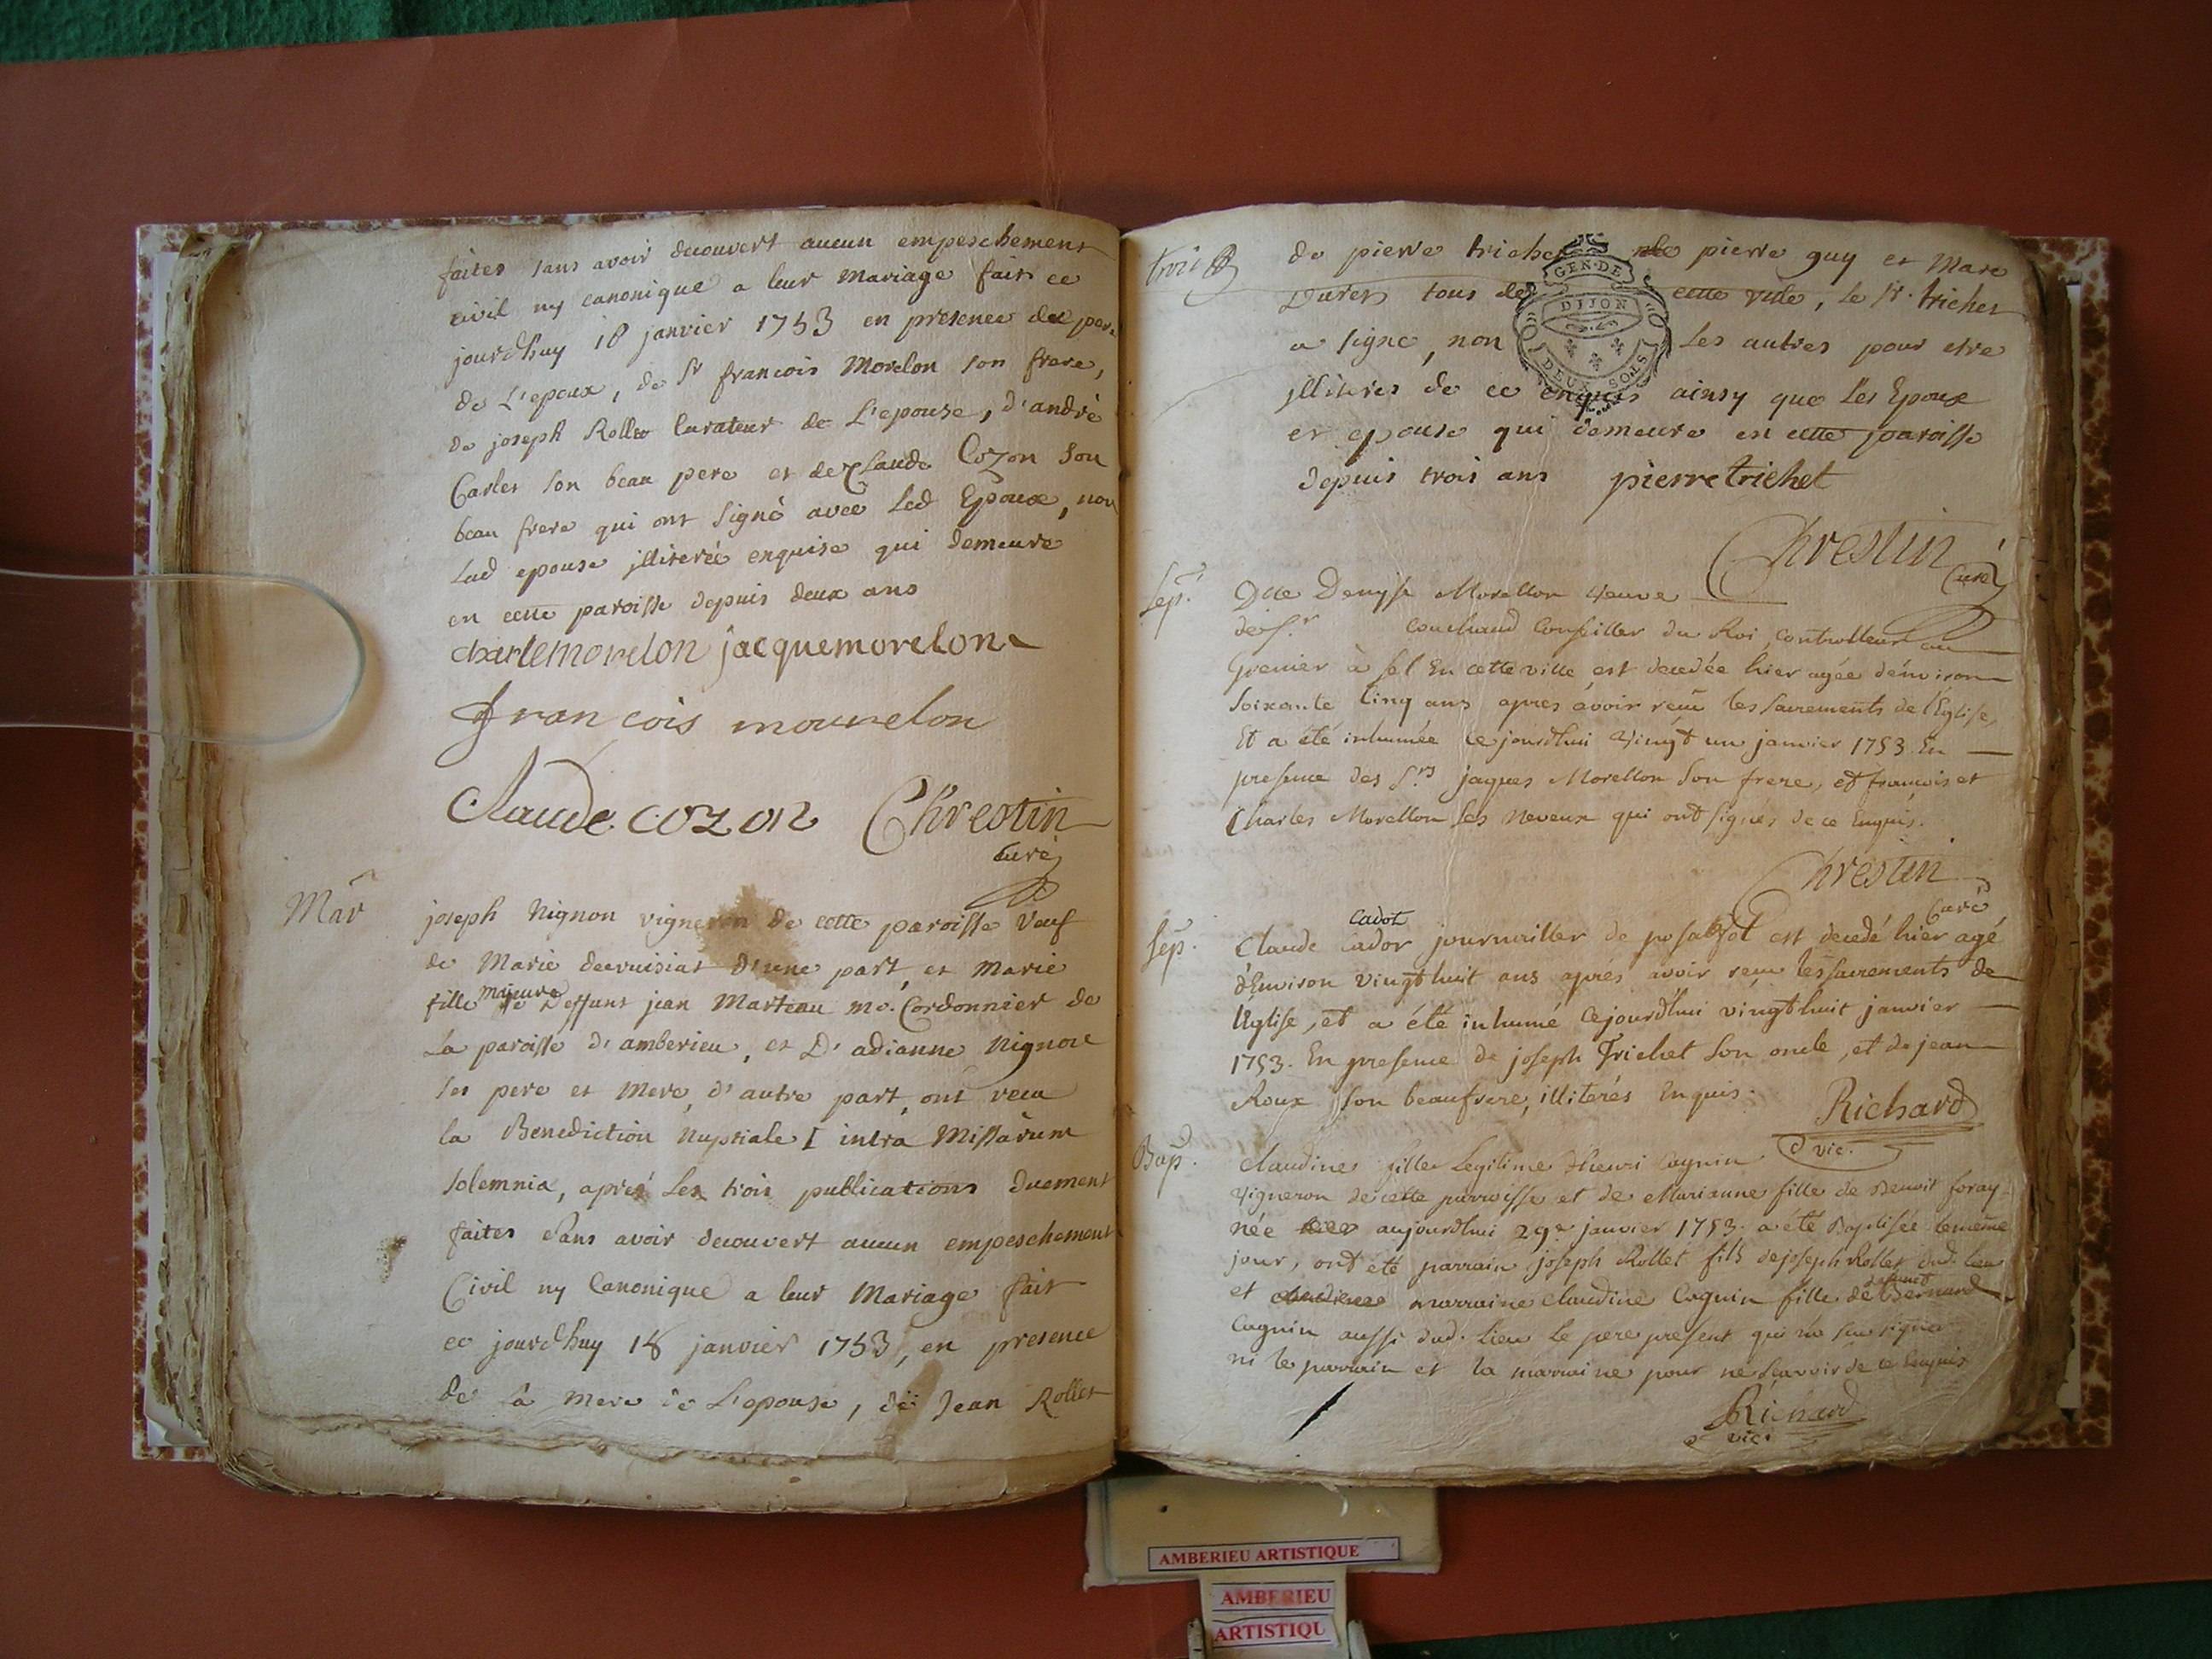 faites sans avoir decouvert aucun empeschement
civil ny canonique a leur mariage fait ce
jourdhuy 18 janvier 1753 en presence du pere
de L'epoux, de Sr francois Morelon son frere,
de joseph Rollet Curateur de L'epouse, d'andrè
Carles son beau pere et de Claude Cozon son
beau frere qui ont signé avec Led Epoux, non
Lad epouse jlliterée enquise qui demeure
en cette paroisse depuis deux ans
charlemorelon jacquemorelon
francois mourelon
Claude cozon Chrestin
Curè
Mar
joseph Nignon vigneron de cette paroisse veuf
de Marie d'une part, et Marie
fille majeure de Deffunt jean Marteau me. Cordonnier de
La paroisse d'amberieu, et D'adianne Nignon
ses pere et mere, d'autre part, ont receu
la Benediction Nuptiale intra Missarum
solemnia, apres Les trois publications duement
faites sans avoir decouvert aucun empeschement
Civil ny Canonique a leur Mariage fait
ce jourdhuy 18 janvier 1753, en presence
de La mere de L'epouse, de Jean Rollet
trois
de pierre trichet de pierre guy et Marc
Duret tous de cette ville, le Sr. trichet
a signe, non Les autres pour etre
jlliteres de ce enquis ainsy que Les Epoux
et epouse qui demeure en cette paroisse
depuis trois ans pierre trichet
GEN. DE
DIJON
DEUX SOLS
Chrestin
Curé
Sep.
Dlle Denyse Morellon veuve
de Sr. couchaud Conseiller du Roi, Controlleur au
Grenier à sel En cette ville est decedée hier agée d'environ
Soixante Cinq ans apres avoir reçu les sacrements de l'Eglise,
Et a été inhumée ce jourdhui vingt un janvier 1753 En
presence des Srs jaques Morellon Son frere, et francois et
Charles Morellon ses neveux qui ont signés de ce Enquis.
Chrestin
Curé
Sep.
cadot
Claude Cador journaillier de posafol est decedé hier agé
d'Environ vingthuit ans aprés avoir reçu les sacrements de
l'Eglise, et a été inhumé Cejourdhui vingthuit janvier
1753. En presence de joseph Trichet Son oncle, et de jean
Roux son beaufrere, illiterés Enquis.
Richard
vic.
Bap.
Claudine fille Legitime d'henri Cagnin
vigneron de cette parroisse et de Marianne fille de Benoit foray
née aujourdhui 29e janvier 1753. a été Baptisée le meme
jour, ont été parrain joseph Rollet fils de joseph Rollet dud. lieu
et marraine Claudine Cagnin fille de defunct Bernard
Cagnin aussi dud. Lieu Le pere present qui n'a sçu signer
ni le parrain et la marraine pour ne Sçavoir de ce Enquis
Richard
vic.
AMBERIEU ARTISTIQUE
AMBERIEU
ARTISTIQU